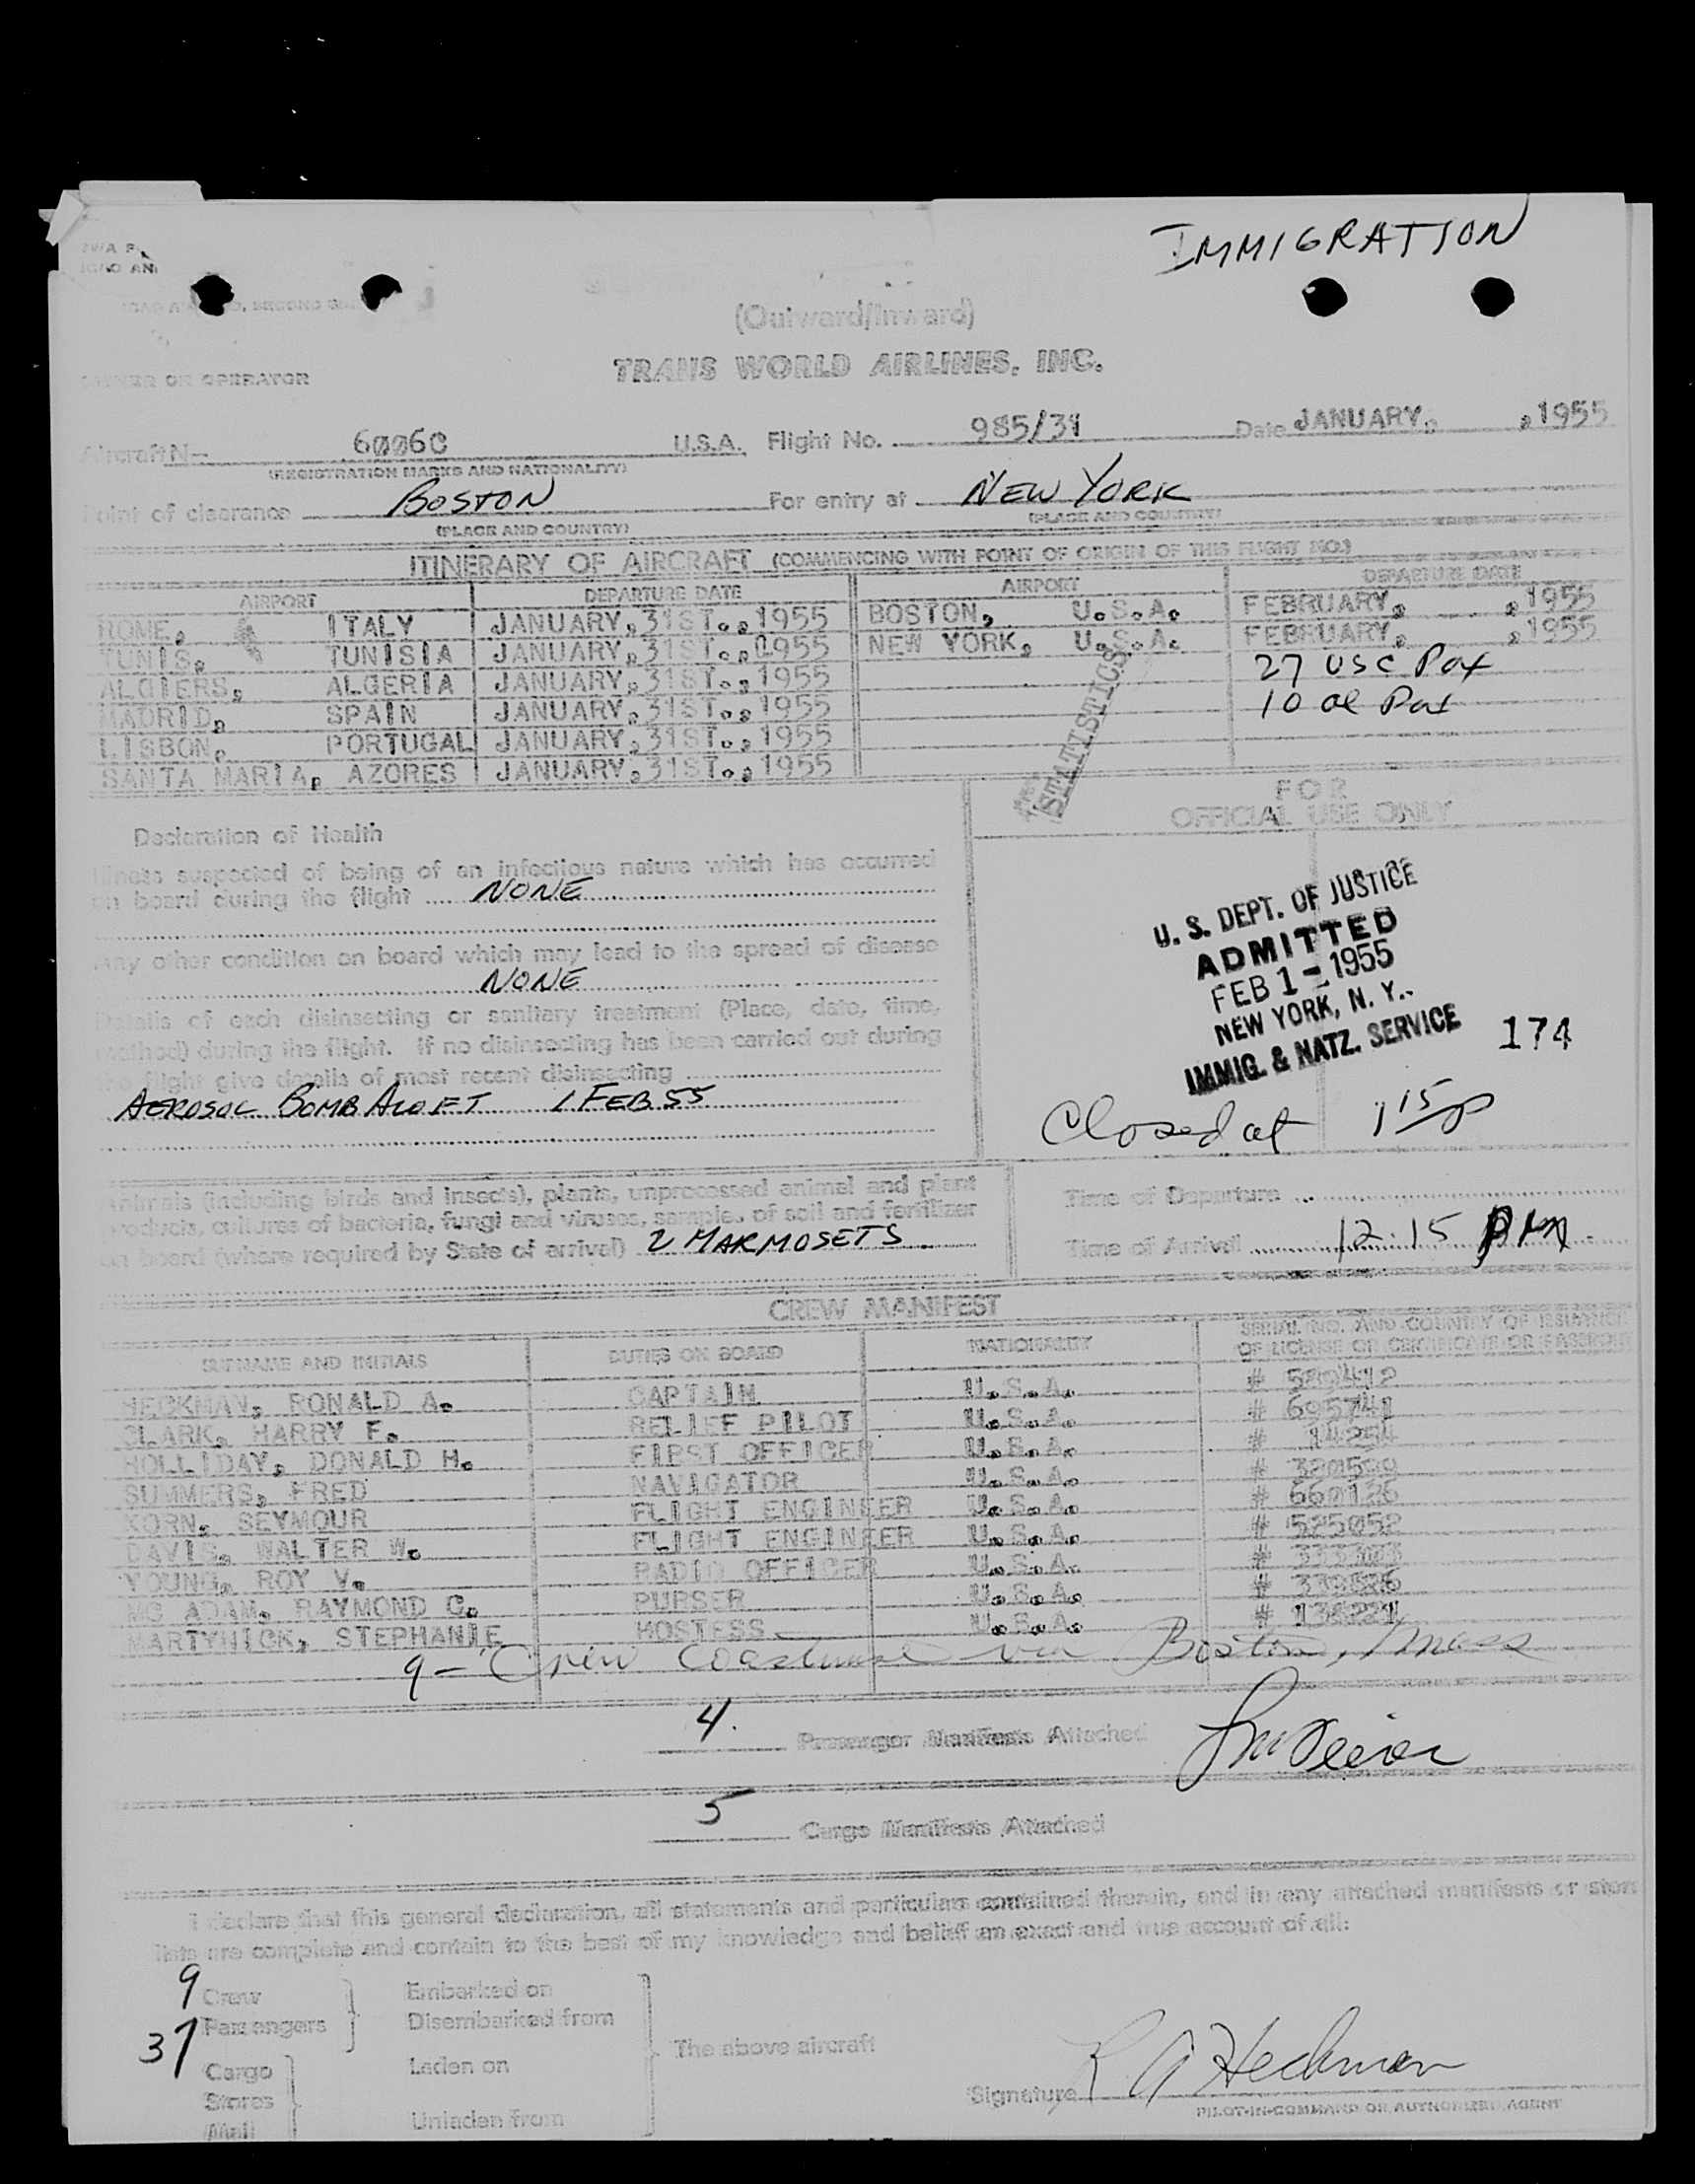 IMMIGRATION
(Outward/Inward)
TRANS WORLD AIRLINES, INC.
OWNER OR OPERATOR
Aircraft N- 6006C U.S.A. Flight No. 985/31 Date JANUARY, , 1955
(REGISTRATION MARKS AND NATIONALITY)
Point of clearance BOSTON For entry at NEW YORK
(PLACE AND COUNTRY) (PLACE AND COUNTRY)
ITINERARY OF AIRCRAFT (COMMENCING WITH POINT OF ORIGIN OF THIS FLIGHT NO.)
AIRPORT DEPARTURE DATE AIRPORT DEPARTURE DATE
ROME, ITALY JANUARY, 31ST., 1955 BOSTON, U.S.A. FEBRUARY, , 1955
TUNIS, TUNISIA JANUARY, 31ST., 1955 NEW YORK, U.S.A. FEBRUARY, , 1955
ALGIERS, ALGERIA JANUARY, 31ST., 1955 27 USC Pax
MADRID, SPAIN JANUARY, 31ST., 1955 10 al Pax
LISBON, PORTUGAL JANUARY, 31ST., 1955
SANTA MARIA, AZORES JANUARY, 31ST., 1955
STATISTICS
FOR
OFFICIAL USE ONLY
Declaration of Health
Illness suspected of being of an infectious nature which has occurred
on board during the flight NONE
Any other condition on board which may lead to the spread of disease
NONE
Details of each disinsecting or sanitary treatment (Place, date, time,
method) during the flight. If no disinsecting has been carried out during
the flight give details of most recent disinsecting
AEROSOL BOMB ALOFT 1 FEB 55
U. S. DEPT. OF JUSTICE
ADMITTED
FEB 1 - 1955
NEW YORK, N. Y.
IMMIG. & NATZ. SERVICE 174
Closed at 1 15 p
Animals (including birds and insects), plants, unprocessed animal and plant
products, cultures of bacteria, fungi and viruses, samples of soil and fertilizer
on board (where required by State of arrival) 2 MARMOSETS.
Time of Departure
Time of Arrival 12:15 PM
CREW MANIFEST
SURNAME AND INITIALS DUTIES ON BOARD NATIONALITY SERIAL NO. AND COUNTRY OF ISSUANCE
OF LICENSE OR CERTIFICATE OR PASSPORT
HECKMAN, RONALD A. CAPTAIN U.S.A. # 589412
CLARK, HARRY F. RELIEF PILOT U.S.A. # 695741
HOLLIDAY, DONALD H. FIRST OFFICER U.S.A. # 14254
SUMMERS, FRED NAVIGATOR U.S.A. #
KORN, SEYMOUR FLIGHT ENGINEER U.S.A. # 660126
DAVIS, WALTER W. FLIGHT ENGINEER U.S.A. # 525052
YOUNG, ROY V. RADIO OFFICER U.S.A. #
MC ADAM, RAYMOND C. PURSER U.S.A. #
MARTYNICK, STEPHANIE HOSTESS U.S.A. # 138221
9 - Crew Coastwise via Boston, Mass
4. Passenger Manifests Attached
5 Cargo Manifests Attached
I declare that this general declaration, all statements and particulars contained therein, and in any attached manifests or store
lists are complete and contain to the best of my knowledge and belief an exact and true account of all:
9 Crew Embarked on
37 Passengers Disembarked from
The above aircraft
Cargo Laden on
Stores
Mail Unladen from
Signature R A Heckman
PILOT-IN-COMMAND OR AUTHORIZED AGENT